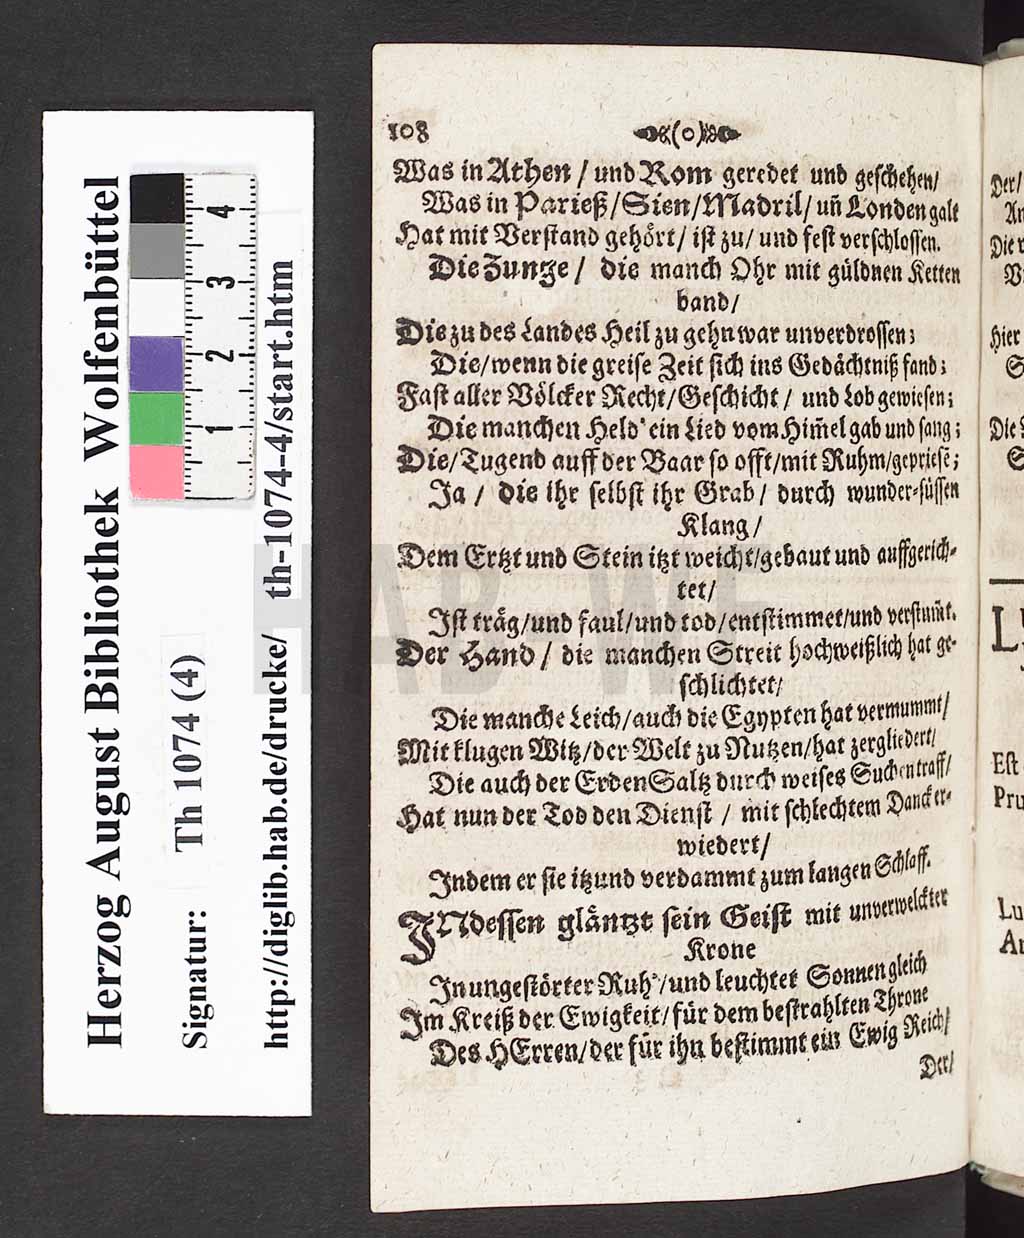 Herzog August Bibliothek Wolfenbüttel
Signatur: Th 1074 (4)
http://diglib.hab.de/drucke/ th-1074-4/start.htm
1 2 3 4
HAB W
108 (o)
Was in Athen / und Rom geredet und geschehen/
Was in Parieß/Sien/Madril/ uñ Londen galt
Hat mit Verstand gehört/ ist zu/ und fest verschlossen.
Die Zunge / die manch Ohr mit güldnen Ketten
band/
Die zu des Landes Heil zu gehn war unverdrossen;
Die/wenn die greise Zeit sich ins Gedächtniß fand;
Fast aller Völcker Recht/Geschicht / und Lob gewiesen;
Die manchen Held' ein Lied vom Him̃el gab und sang;
Die/Tugend auff der Baar so offt/mit Ruhm/gepriesẽ;
Ja / die ihr selbst ihr Grab / durch wunder-süssen
Klang /
Dem Ertzt und Stein itzt weicht/gebaut und auffgerich-
tet/
Ist träg/und faul/und tod/entstimmet/und verstum̃t.
Der Hand / die manchen Streit hochweißlich hat ge-
schlichtet/
Die manche Leich/auch die Egypten hat vermummt/
Mit klugen Witz/der Welt zu Nutzen/hat zergliedert/
Die auch der Erden Saltz durch weises Suchen traff/
Hat nun der Tod den Dienst / mit schlechtem Danck er-
wiedert/
Indem er sie itzund verdammt zum langen Schlaff.
INdessen gläntzt sein Geist mit unverwelckter
Krone
In ungestörter Ruh'/und leuchtet Sonnen gleich
Im Kreiß der Ewigkeit/für dem bestrahlten Throne
Des HErren/der für ihn bestimmt ein Ewig Reich/
Der/
Der/
Die
Hier
Die
Est
Pru
Lu